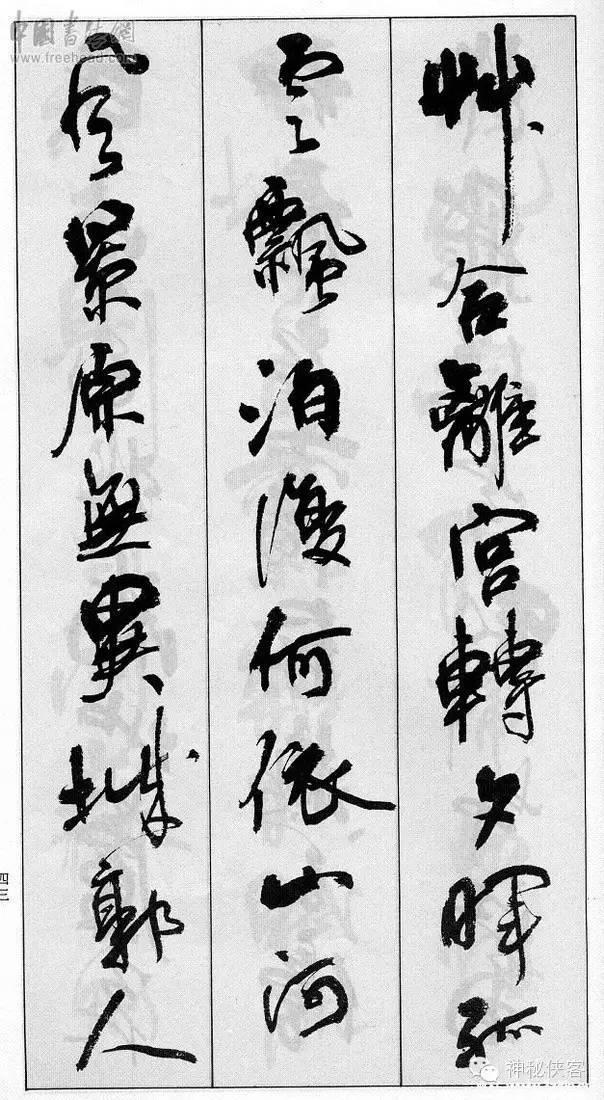 中國書法網
www.freehead.com
艸合離宮轉夕暉孤
雲飄泊復何依山河
風景原無異城郭人
四三
神秘侠客